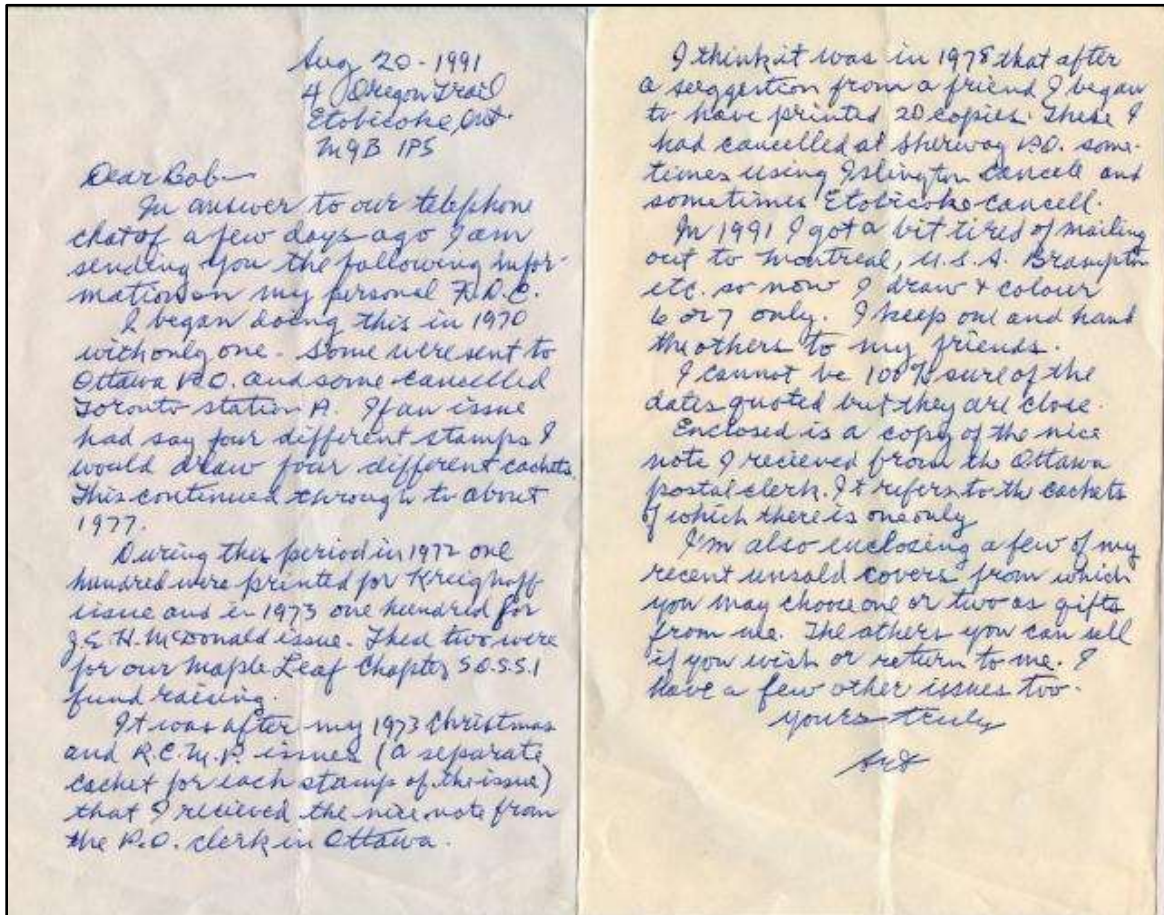 Aug 20 - 1991
4 Oregon Trail
Etobicoke, Ont.
M9B 1P5
Dear Bob —
In answer to our telephone
chat of a few days ago I am
sending you the following infor-
mation on my personal F.D.C.
I began doing this in 1970
with only one. Some were sent to
Ottawa P.O. and some cancelled
Toronto station A. If an issue
had say four different stamps I
would draw four different cachets.
This continued through to about
1977.
During this period in 1972 one
hundred were printed for Kreighoff
issue and in 1973 one hundred for
J.E.H. McDonald issue. Thesd two were
for our Maple Leaf Chapter S.O.S.S.I
fund raising.
It was after my 1973 Christmas
and R.C.M.P. issues (a separate
cachet for each stamp of the issue)
that I recieved the nice note from
the P.O. clerk in Ottawa.
I think it was in 1978 that after
a suggestion from a friend I began
to have printed 20 copies. These I
had cancelled at Sherway P.O. some-
times using Islington cancell and
sometimes Etobicoke cancell.
In 1991 I got a bit tired of mailing
out to Montreal, U.S.A. Brampton
etc. so now I draw & colour
6 or 7 only. I keep one and hand
the others to my friends.
I cannot be 100% sure of the
dates quoted but they are close.
Enclosed is a copy of the nice
note I recieved from the Ottawa
postal clerk. It refers to the cachets
of which there is one only
I'm also enclosing a few of my
recent unsold covers from which
you may choose one or two as gifts
from me. The others you can sell
if you wish or return to me. I
have a few other issues too.
Yours truly
Art